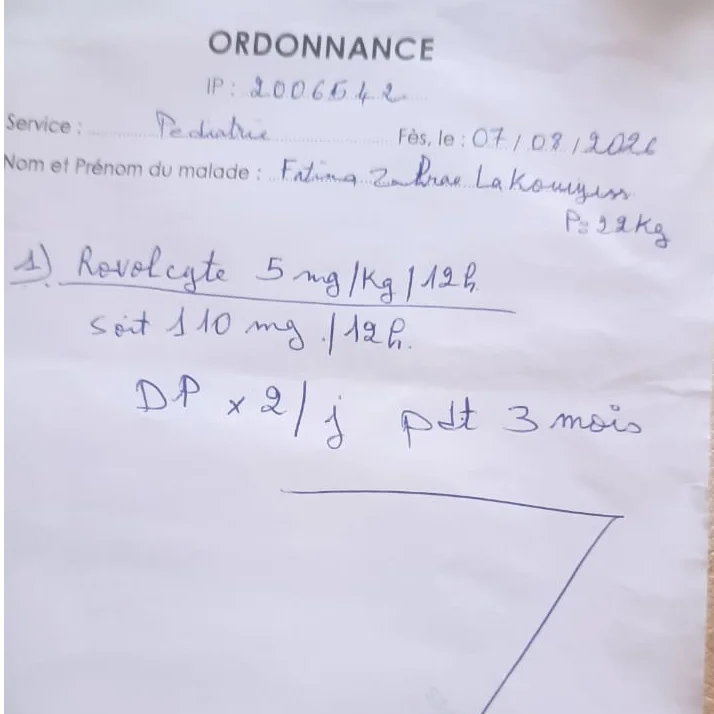 ORDONNANCE
IP : 2006542
Service : Pediatrie Fès, le : 07/08/2026
Nom et Prénom du malade : Fatima Zahrae Lakouyess
P= 22Kg
1) Rovolcyte 5 mg/Kg/12h.
soit 110 mg /12h.
DP x 2/j pdt 3 mois